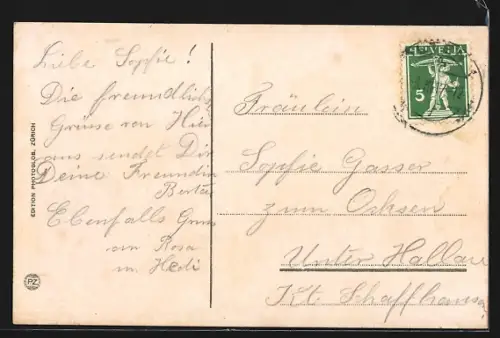 Liebe Sophie!
Die freundlichs
Grüsse von Hier
aus sendet Dir
Deine Freundin
Berta
Ebenfalls Gruss
an Rosa
u. Hedi
EDITION PHOTOGLOB, ZÜRICH
PZ
HELVETIA
5
Fräulein
Sophie Gasser
zum Ochsen
Unter Hallau
Kt. Schaffhausen